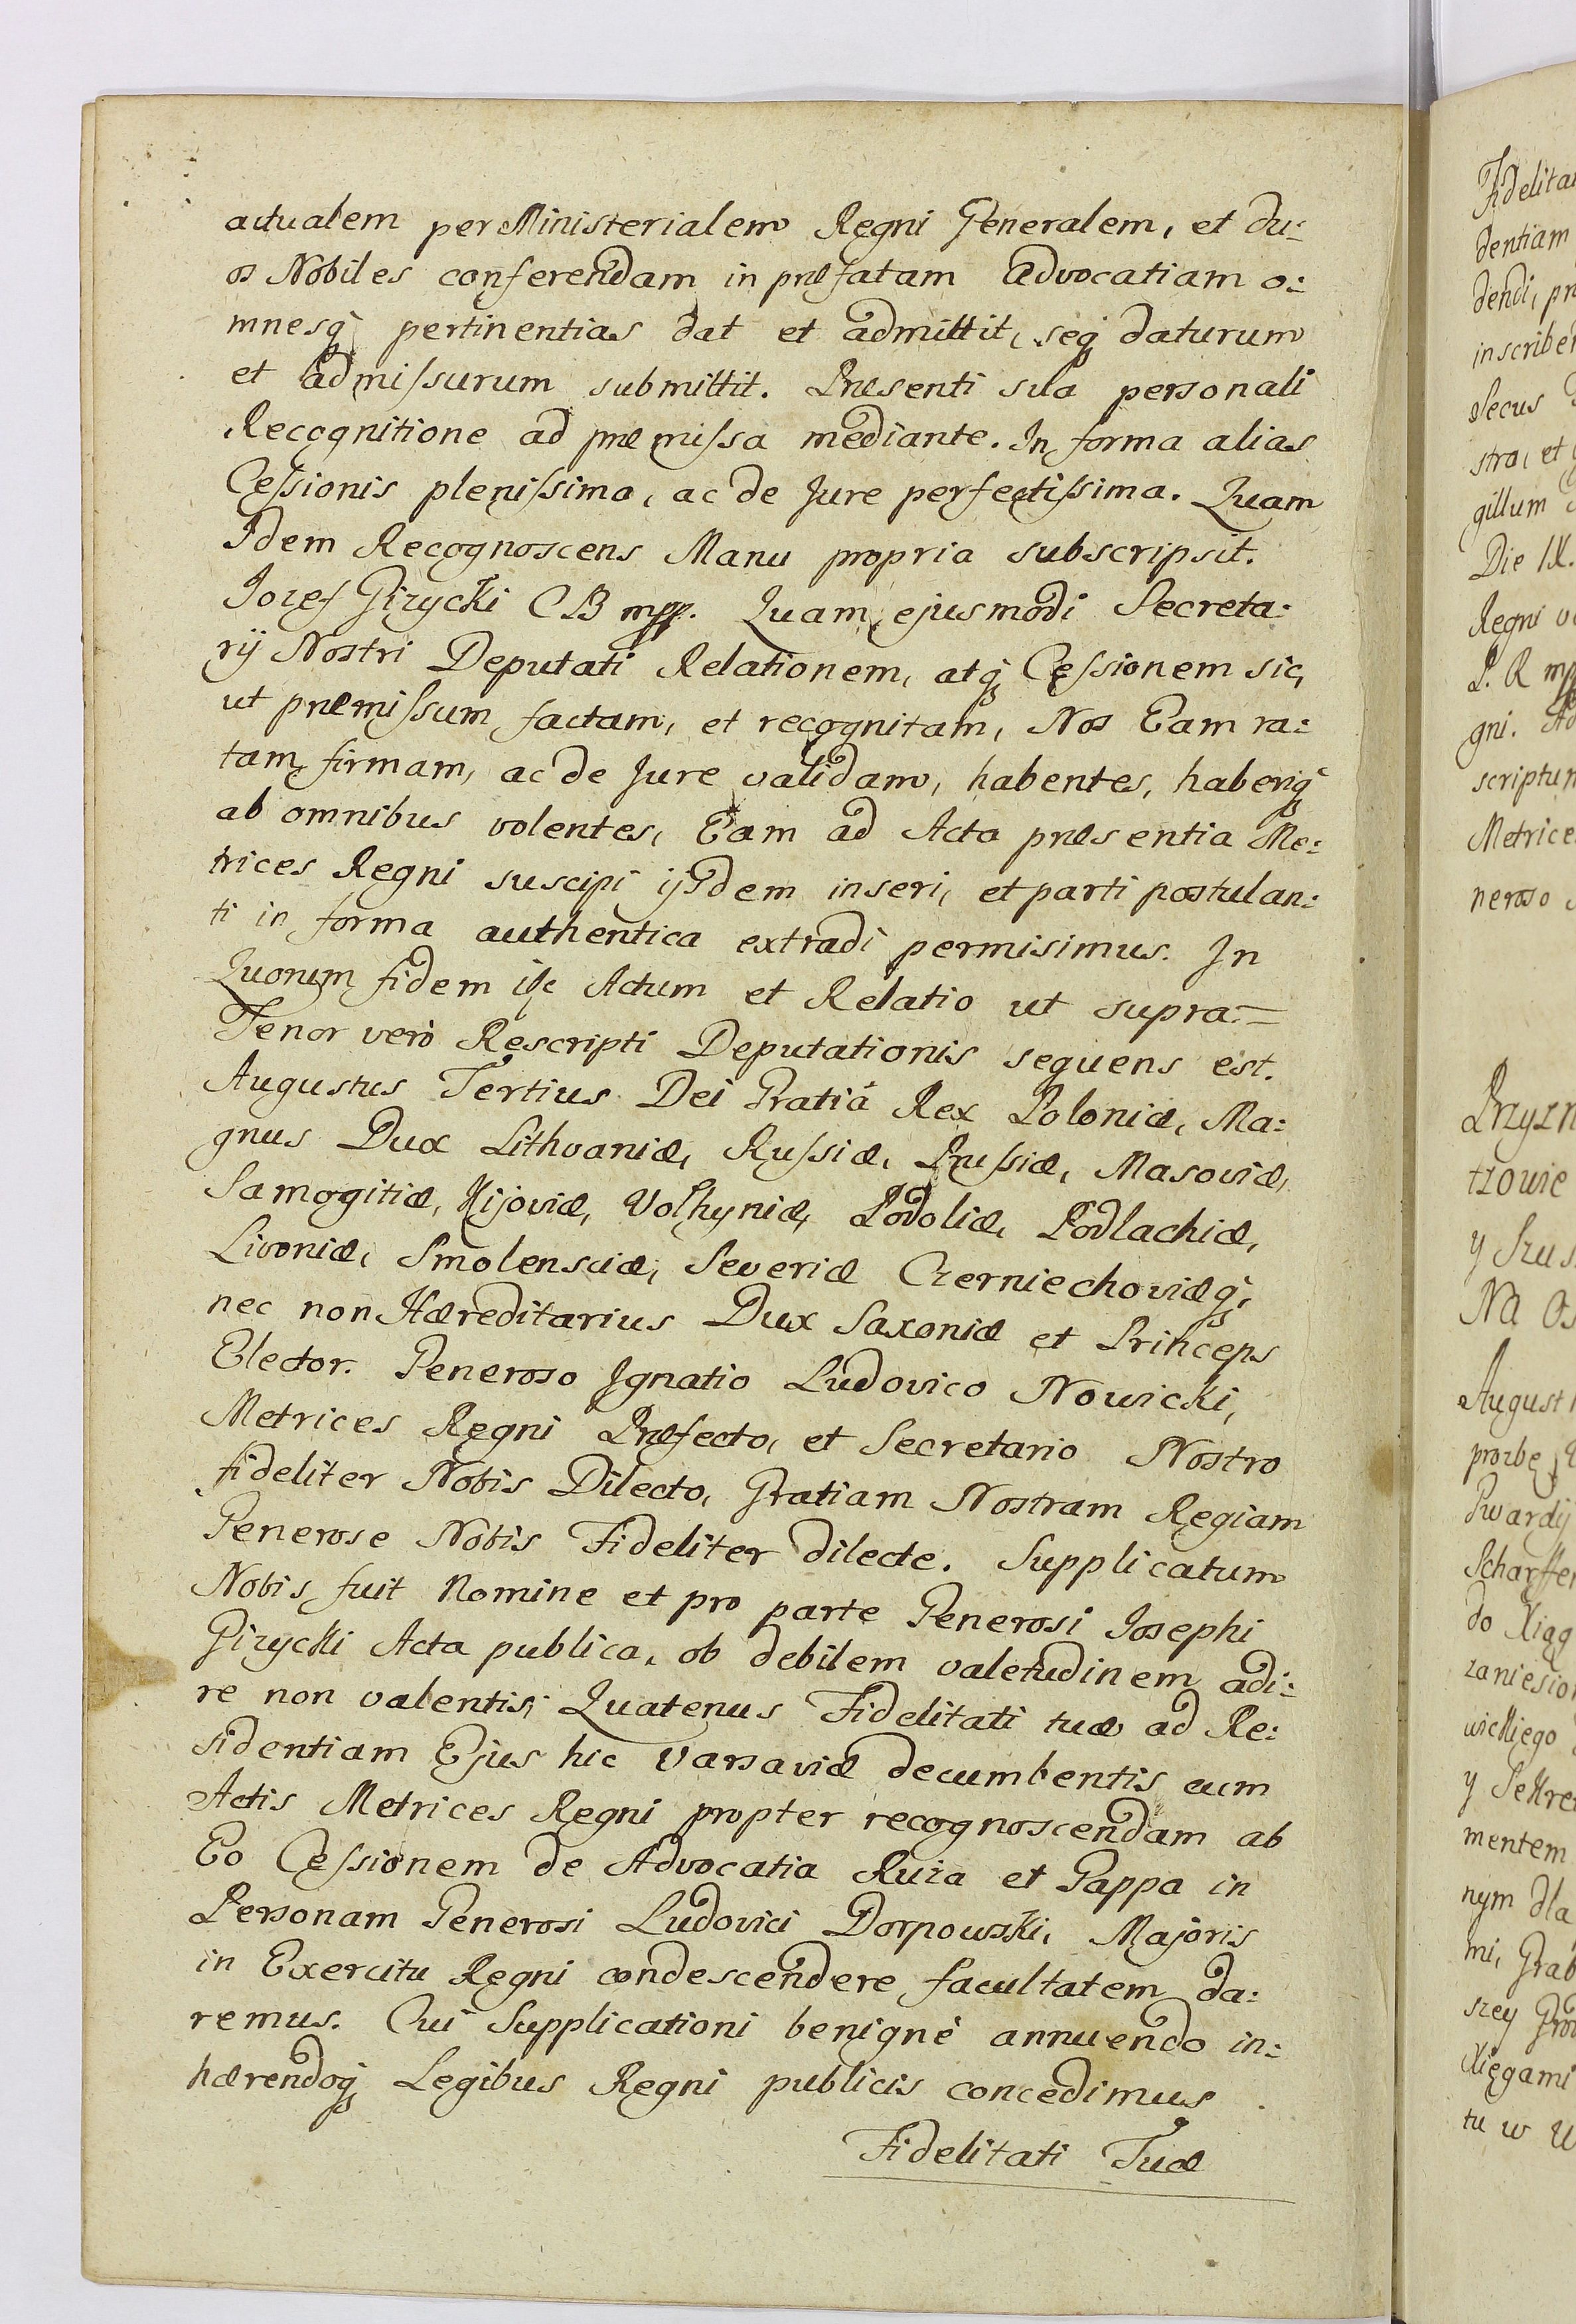 actualem per Ministerialem Regni Generalem, et du:
os Nobiles conferendam in præfatam Advocatiam o:
mnesq́ pertinentias dat et admittit, seq́ daturum
et admiſsurum submittit. Præsenti sua personali
Recognitione ad præmiſsa mediante. In forma alias
Ceſsionis pleniſsima, ac de Jure perfectiſsima. Quam
Idem Recognoscens Manu propria subscripsit.
Jozef Giżycki CB mpp. Quam ejusmodi Secreta:
rij Nostri Deputati Relationem, atq́ Ceſsionem sic,
ut præmiſsum factam, et recognitam, Nos Eam ra:
tam firmam, ac de Jure validam, habentes, haberiq́
ab omnibus volentes, Eam ad Acta præsentia Me:
trices Regni suscipi ijsdem inseri, et parti postulan:
ti in forma authentica extradi permisimus. In
Quorum fidem Actum et Relatio ut supra. =
Tenor verò Rescripti Deputationis sequens est.
Augustus Tertius Dei Gratiá Rex Poloniæ, Ma:
gnus Dux Lithvaniæ, Ruſsiæ, Pruſsiæ, Masoviæ,
Samogitiæ, Kijoviæ, Volhyniæ, Podoliæ, Podlachiæ,
Livoniæ, Smolensciæ, Severiæ Czerniechoviæq́,
nec non Hæreditarius Dux Saxoniæ et Princeps
Elector. Generoso Ignatio Ludovico Nowicki,
Metrices Regni Præfecto, et Secretario Nostro
fideliter Nobis Dilecto, Gratiam Nostram Regiam
Generose Nobis Fideliter dilecte. Supplicatum
Nobis fuit Nomine et pro parte Generosi Josephi
Giżycki Acta publica, ob debilem valetudinem adi:
re non valentis, Quatenus Fidelitati tuæ ad Re:
sidentiam Ejus hic Varsaviæ decumbentis cum
Actis Metrices Regni propter recognoscendam ab
Eo Ceſsionem de Advocatia Ruza et Gappa in
Personam Generosi Ludovici Dorpowski, Majoris
in Exercitu Regni condescendere facultatem da:
remus. Cui Supplicationi benignè annuendo in:
hærendoq́ Legibus Regni publicis concedimus
Fidelitati Tuæ
dentiam
Die IX.
Metrice
Na
August
mentem
nym dla